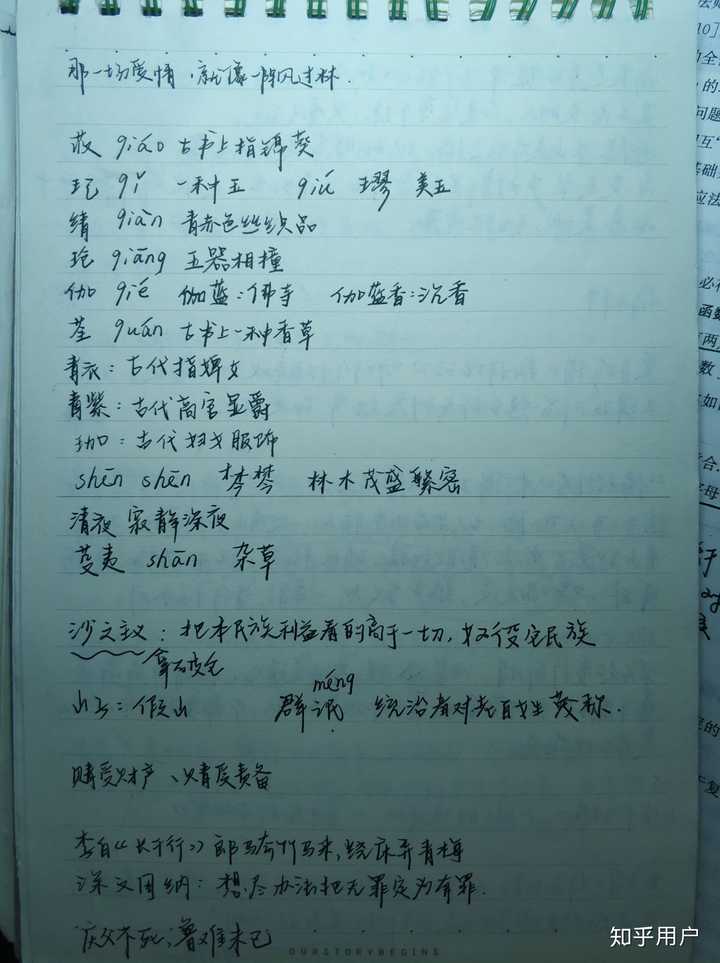 那一场爱情,就像一阵风过林.
荍 qiáo 古书上指锦葵
玘 qǐ 一种玉 qiú 璆 美玉
綪 qiàn 青赤色丝织品
玱 qiāng 玉器相撞
伽 qié 伽蓝:佛寺 伽蓝香:沉香
荃 quán 古书上一种香草
青衣:古代指婢女
青紫:古代高官显爵
珈:古代妇女服饰
shēn shēn 梣梣 林木茂盛繁密
清夜 寂静深夜
芟夷 shān 杂草
沙文主义:把本民族利益看的高于一切,奴役它民族
拿破仑
méng
山子:假山 群氓 统治者对老百姓蔑称.
赇受财产、责备
李白《长干行》郎骑竹马来,绕床弄青梅
深文周纳:想尽办法把无罪定为有罪.
庆父不死,鲁难未已
OURSTORYBEGINS
知乎用户
10]
的全
的
问题
基础
应法
必
函数
两
数
如
合.
母